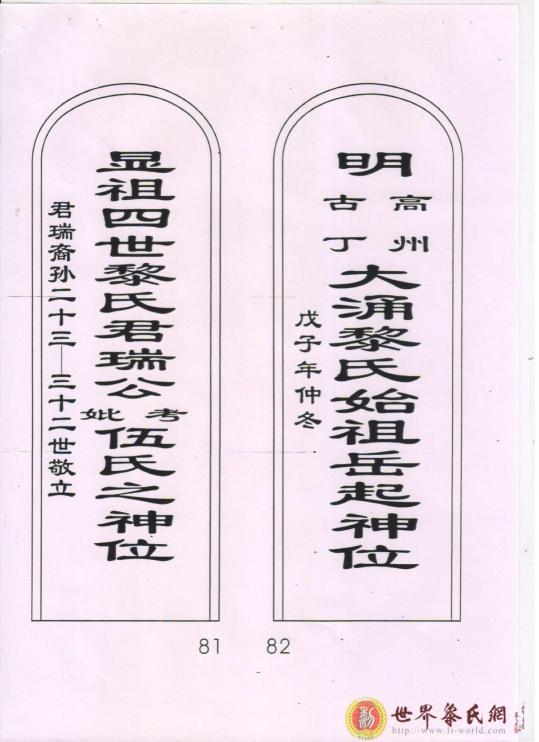 明
高州
古丁
大涌黎氏始祖岳起神位
戊子年仲冬
显祖四世黎氏君瑞公
考
妣
伍氏之神位
君瑞裔孙二十三—三十二世敬立
81
82
世界黎氏網
http://www.li-world.com